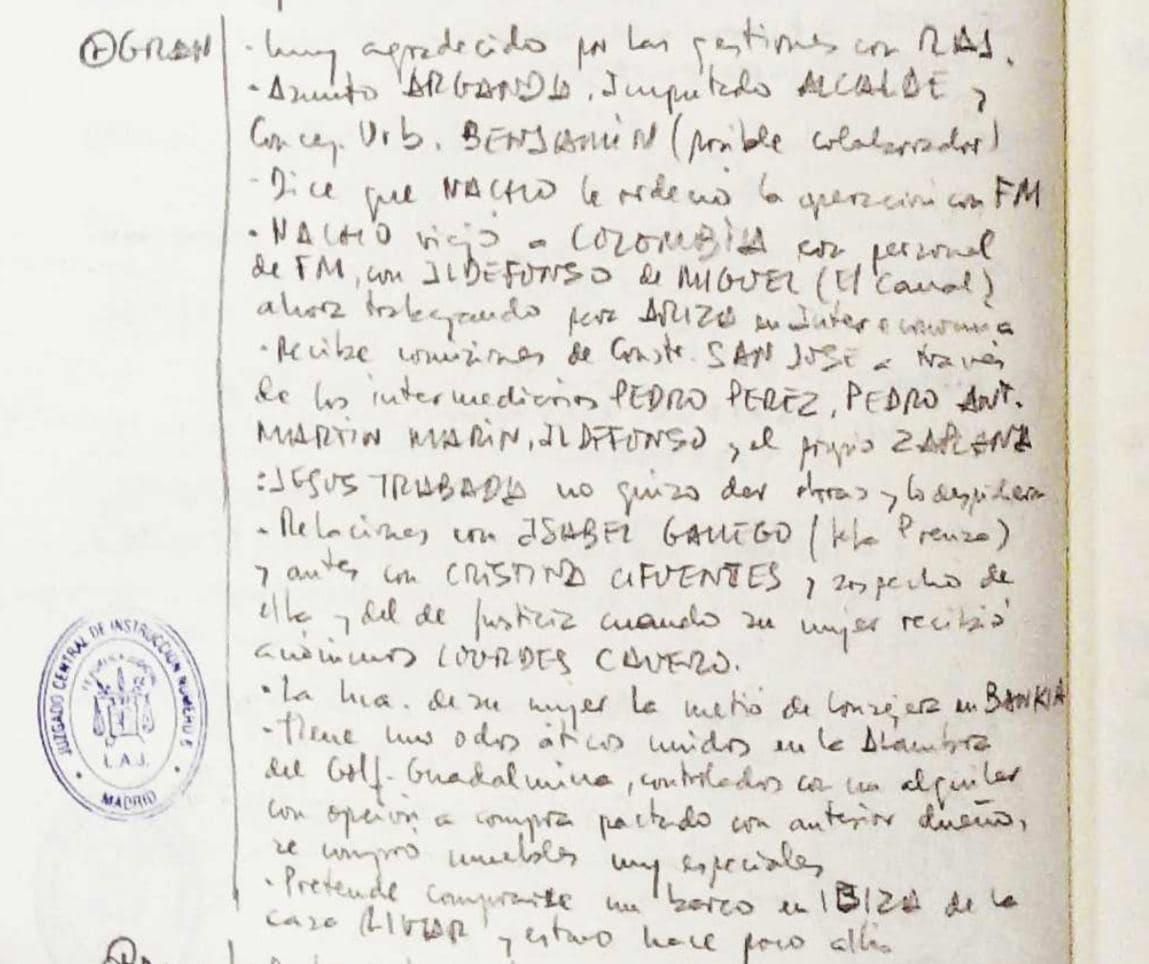 GRAN · Muy agradecido por las gestiones con RAJ.
· Asunto ARGANDA, Imputado ALCALDE y
Concej. Urb. BENJAMIN (posible colaborador)
- Dice que NACHO le ordenó la operación con FM
· NACHO viajó a COLOMBIA con personal
de FM, con ILDEFONSO de MIGUEL (El Canal)
ahora trabajando para ARIZA en Intereconomia
· Recibe comisiones de Constr. SAN JOSE a través
de los intermediarios PEDRO PEREZ, PEDRO ANT.
MARTIN MARIN, ILDEFONSO y el propio ZAPLANA
: JESUS TRABADA no quiso dar obras y lo despidieron
· Relaciones con ISABEL GALLEGO (Prensa)
y antes con CRISTINA CIFUENTES, sospecho de
ella y del de Justicia cuando su mujer recibió
anónimos LOURDES CAVERO.
· La hna. de su mujer la metió de Consejera en BANKIA
· Tiene uno o dos áticos unidos en la Alambra
del Golf-Guadalmina, controlados con un alquiler
con opción a compra pactado con anterior dueño,
se compró muebles muy especiales
· Pretende comprarse un barco en IBIZA de la
casa y estuvo hace poco allí
JUZGADO CENTRAL DE INSTRUCCION NUMERO 6
L.A.J.
MADRID